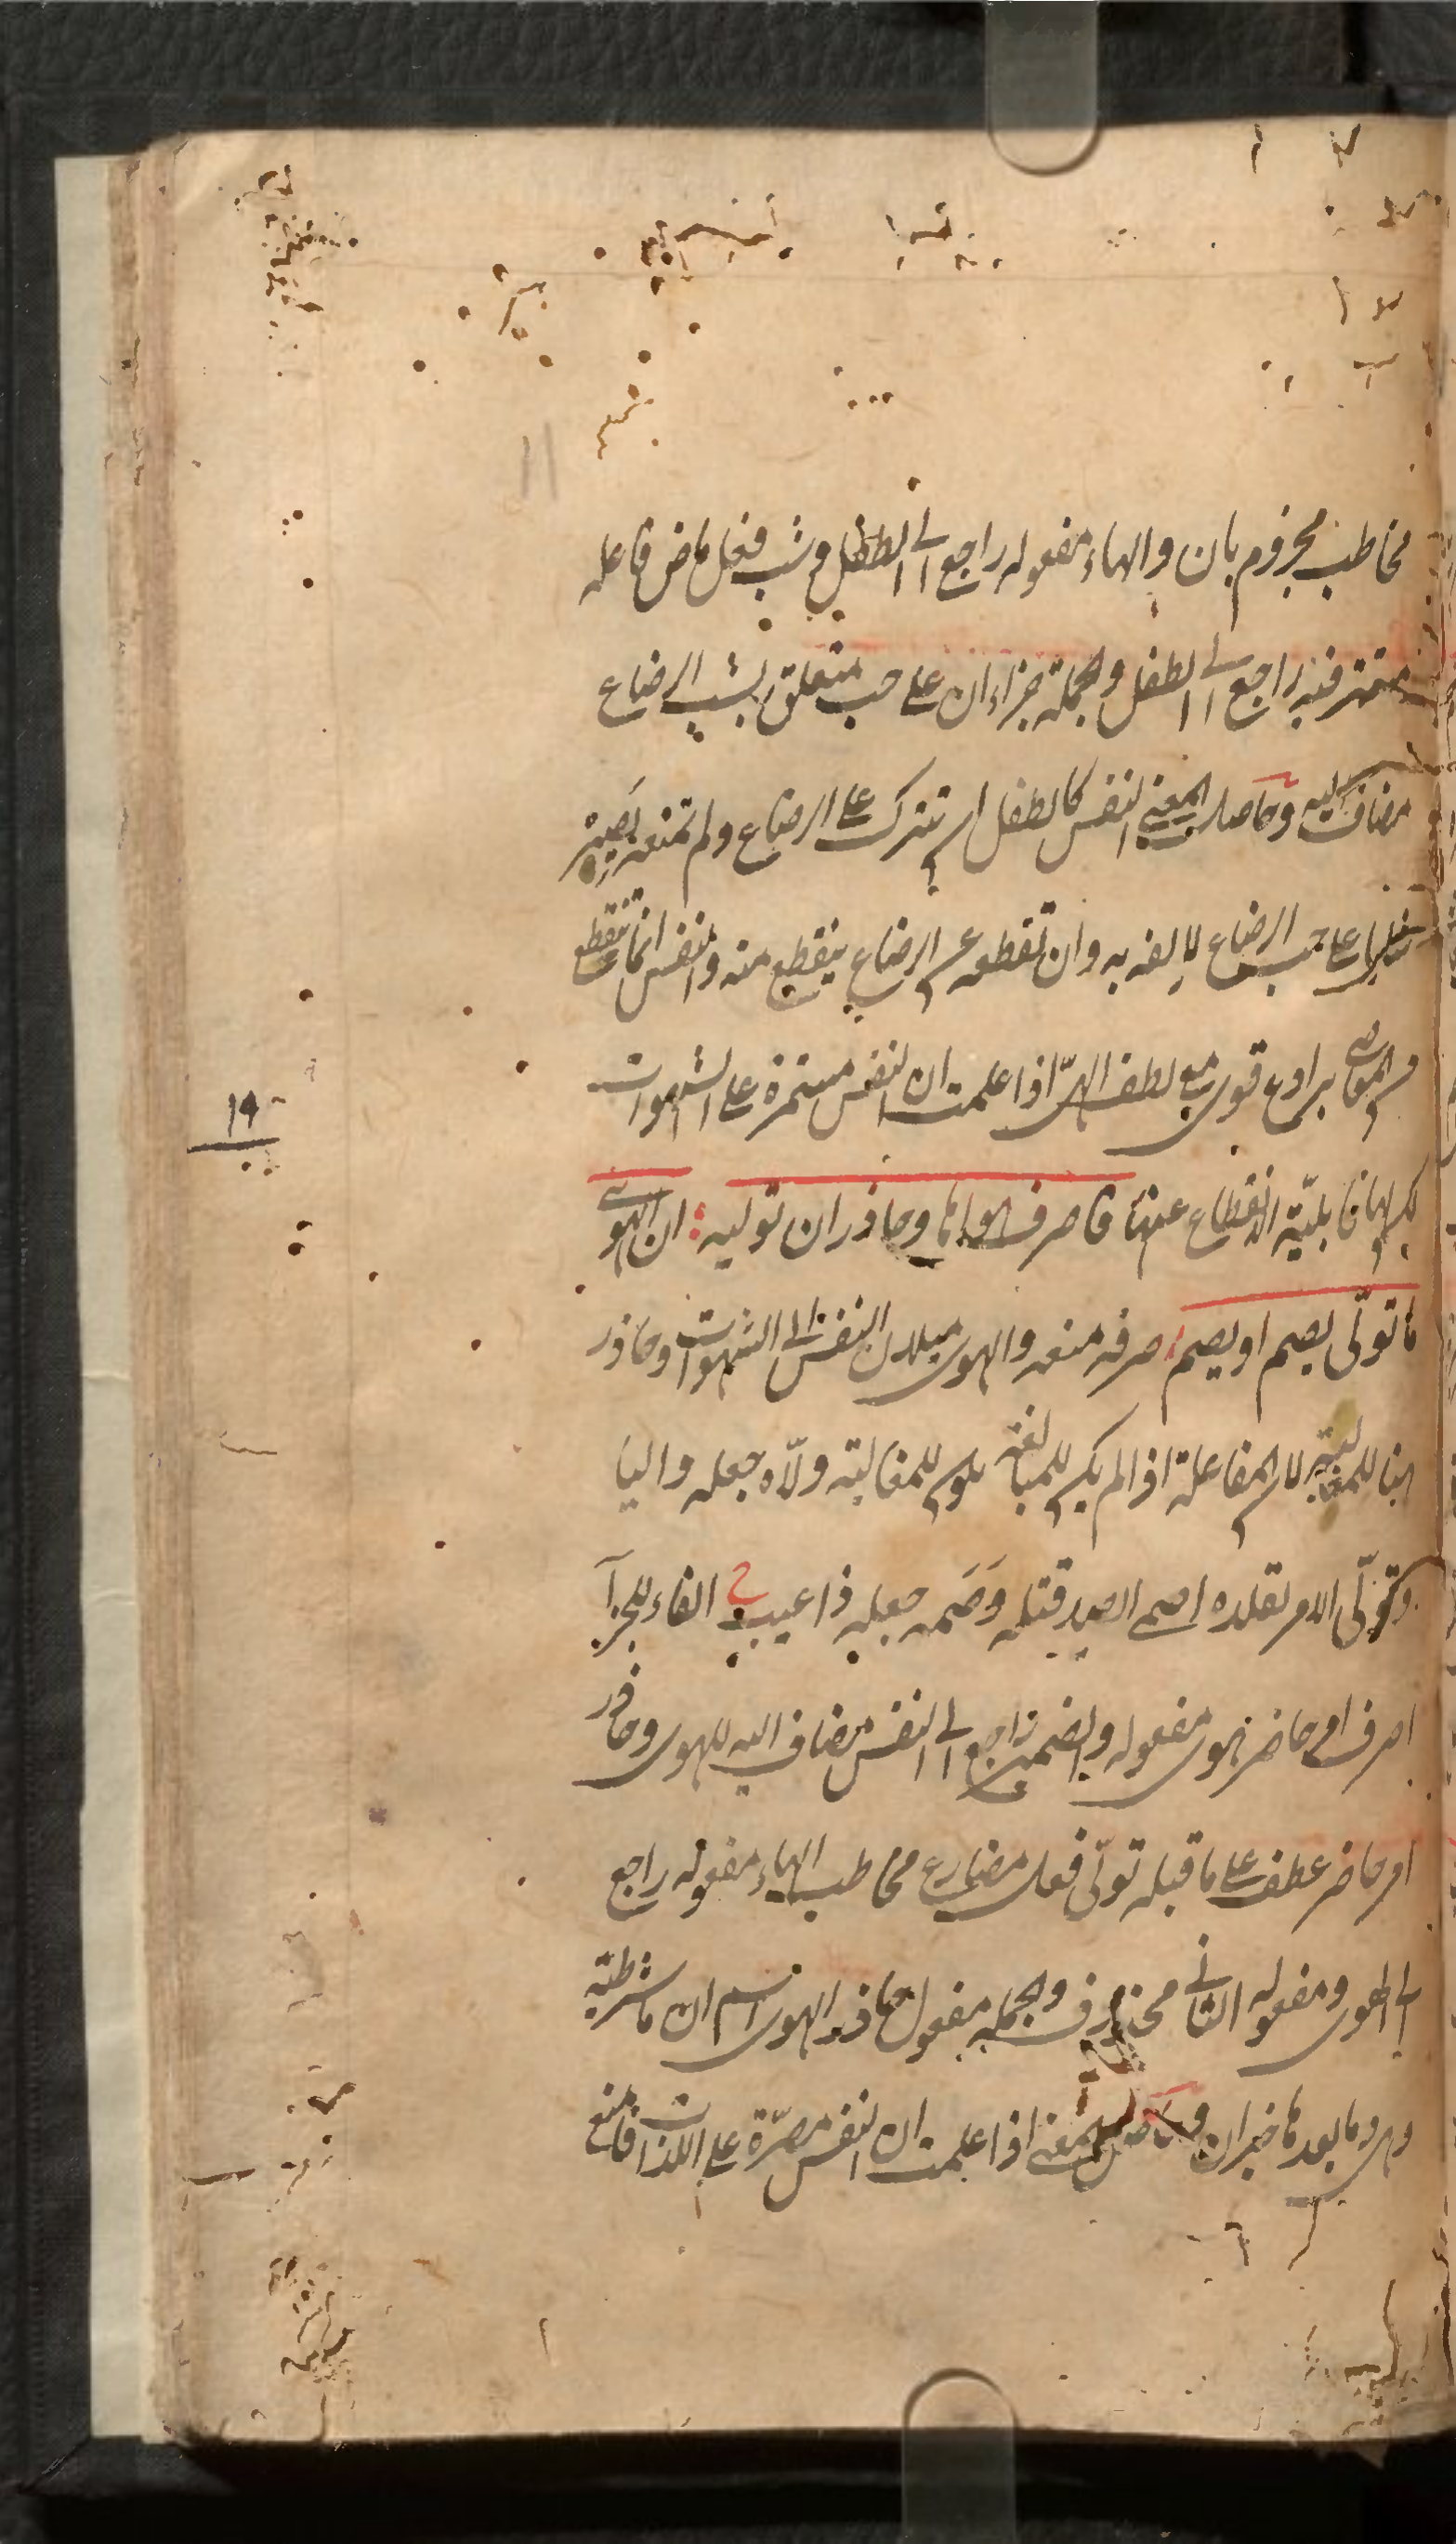 مخاطب مجزوم بان والهاء مفعوله راجع الى الطفل وشب فعل ماض فاعله
مستتر فيه راجع الى الطفل والجملة جزاء ان على حب متعلق بشب الرضاع
مضاف اليه وحاصل المعنى النفس كالطفل ان تترك على الرضاع ولم تمنعه يصير
على حب الرضاع لالفه به وان تقطعه عن الرضاع ينقطع منه والنفس انما تنقطع
عن المعاصى برادع قوى مع لطف الهىّ اذا علمت ان النفس مستمرة على الشهوات
لكن لها قابليّة الانقطاع عنها فاصرف هواها وحاذر ان توليه ان الهوى
ما تولّى يصم او يصم صرفه منعه والهوى ميلان النفس الى الشهوات وحاذر
هنا للمغالبة لان المفاعلة اذا لم يكن للمبالغة يكون للمغالبة ولّاه جعله واليا
وتولّى الامر تقلده اصمى الصيد قتله وَصَمه جعله ذا عيب الفاء للجزآ
اصرف امر حاضر هوى مفعوله والضمير راجع الى النفس مضاف اليه للهوى وحاذر
امر حاضر عطف على ما قبله تولّى فعل مضارع مخاطب الهاء مفعوله راجع
الى الهوى ومفعوله الثانى محذوف والجمله مفعول حاذر الهوى اسم ان ما شرطية
وهى وما بعدها خبر ان وحاصل المعنى اذا علمت ان النفس مصرّة على اللذات فامنع